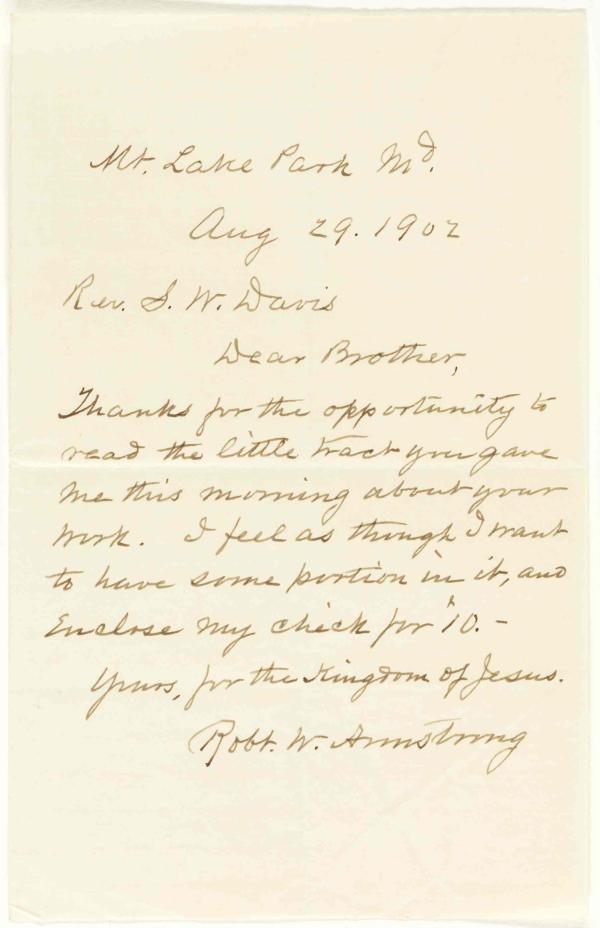 Mt. Lake Park Md.
Aug 29. 1902
Rev. S. W. Davis
Dear Brother,
Thanks for the opportunity to
read the little tract you gave
me this morning about your
work. I feel as though I want
to have some portion in it, and
Enclose my check for $10.-
Yours, for the Kingdom of Jesus.
Robt. W. Armstrong